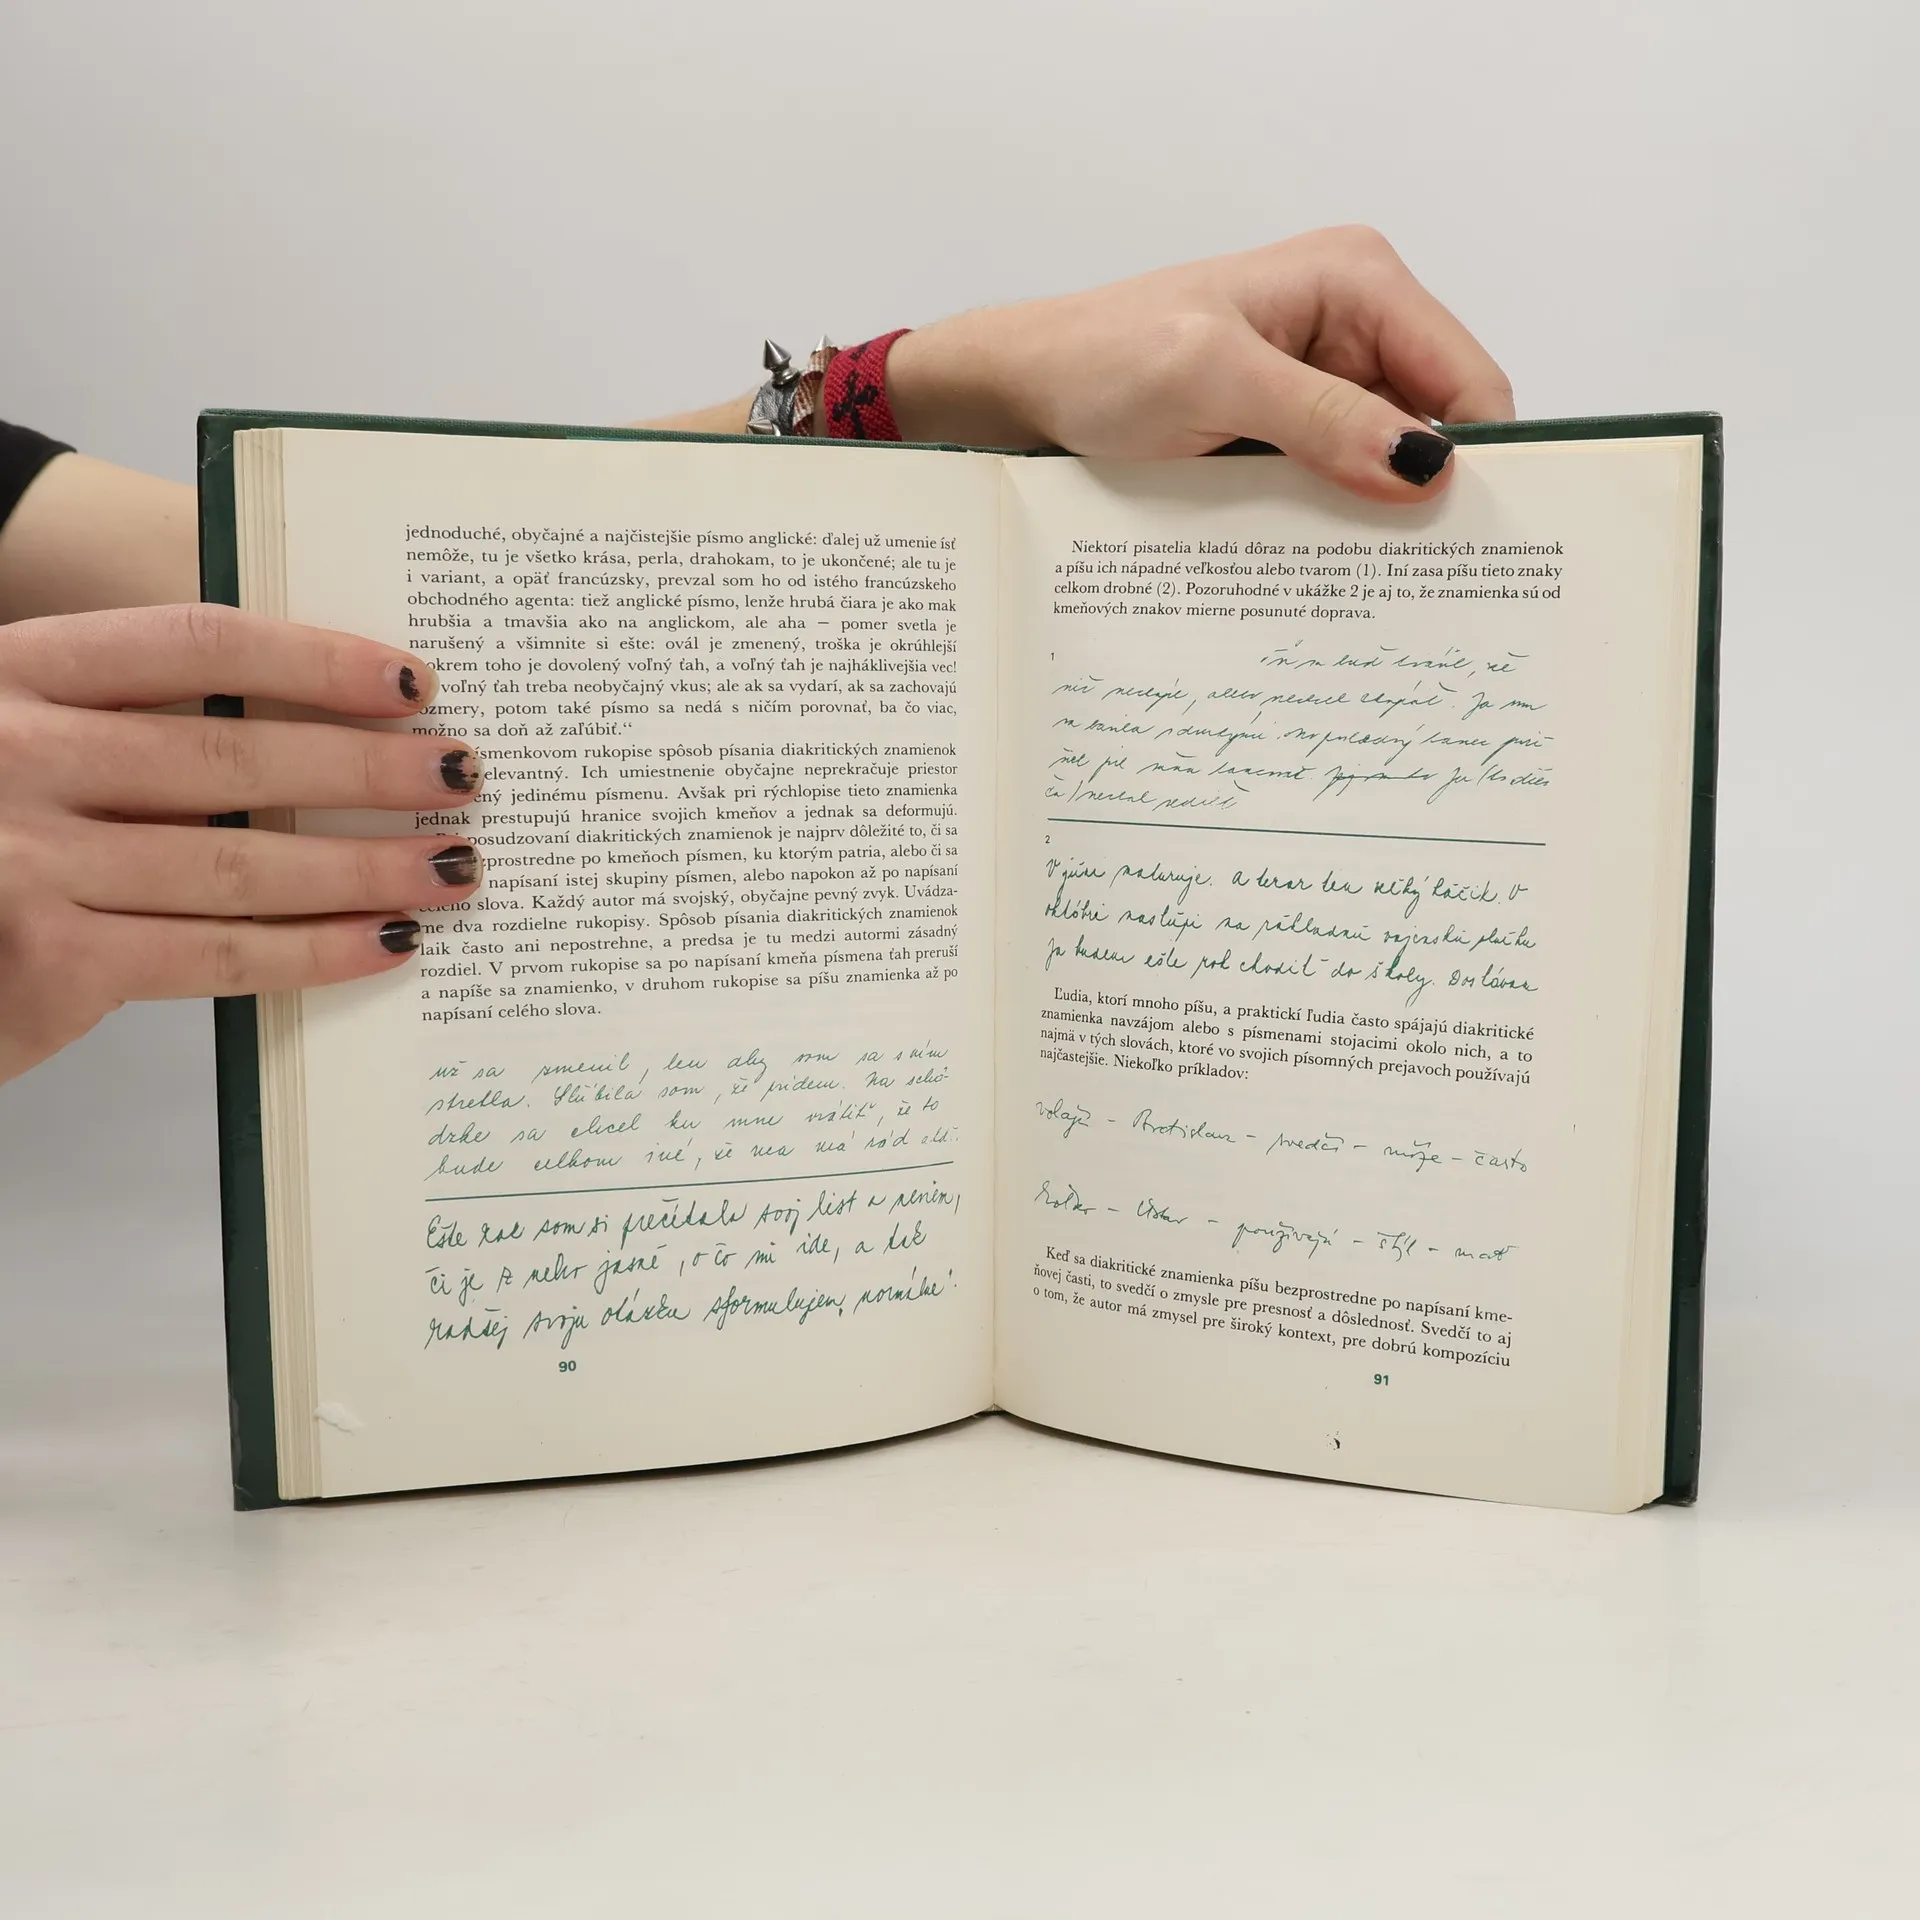 jednoduché, obyčajné a najčistejšie písmo anglické: ďalej už umenie ísť
nemôže, tu je všetko krása, perla, drahokam, to je ukončené; ale tu je
i variant, a opäť francúzsky, prevzal som ho od istého francúzskeho
obchodného agenta: tiež anglické písmo, lenže hrubá čiara je ako mak
hrubšia a tmavšia ako na anglickom, ale aha — pomer svetla je
narušený a všimnite si ešte: ovál je zmenený, troška je okrúhlejší
okrem toho je dovolený voľný ťah, a voľný ťah je najháklivejšia vec!
voľný ťah treba neobyčajný vkus; ale ak sa vydarí, ak sa zachovajú
ozmery, potom také písmo sa nedá s ničím porovnať, ba čo viac,
možno sa doň až zaľúbiť.“
ísmenkovom rukopise spôsob písania diakritických znamienok
elevantný. Ich umiestnenie obyčajne neprekračuje priestor
ený jedinému písmenu. Avšak pri rýchlopise tieto znamienka
jednak prestupujú hranice svojich kmeňov a jednak sa deformujú.
posudzovaní diakritických znamienok je najprv dôležité to, či sa
zprostredne po kmeňoch písmen, ku ktorým patria, alebo či sa
napísaní istej skupiny písmen, alebo napokon až po napísaní
celého slova. Každý autor má svojský, obyčajne pevný zvyk. Uvádza-
me dva rozdielne rukopisy. Spôsob písania diakritických znamienok
laik často ani nepostrehne, a predsa je tu medzi autormi zásadný
rozdiel. V prvom rukopise sa po napísaní kmeňa písmena ťah preruší
a napíše sa znamienko, v druhom rukopise sa píšu znamienka až po
napísaní celého slova.
už sa zmenil, len aby som sa s ním
stretla. Sľúbila som, že prídem. Na schô-
dzke sa chcel ku mne vrátiť, že to
bude celkom iné, že ma má rád atď.
Ešte raz som si prečítala svoj list a neviem,
či je z neho jasné, o čo mi ide, a tak
radšej svoju otázku sformulujem „normálne“.
90
Niektorí pisatelia kladú dôraz na podobu diakritických znamienok
a píšu ich nápadné veľkosťou alebo tvarom (1). Iní zasa píšu tieto znaky
celkom drobné (2). Pozoruhodné v ukážke 2 je aj to, že znamienka sú od
kmeňových znakov mierne posunuté doprava.
1
že
nič alebo Ja som
sa
Ja
2
V júni maturuje. A teraz ten veľký háčik. V
októbri nastúpi na základnú vojenskú službu
Ja budem ešte rok chodiť do školy. Dostávam
Ľudia, ktorí mnoho píšu, a praktickí ľudia často spájajú diakritické
znamienka navzájom alebo s písmenami stojacimi okolo nich, a to
najmä v tých slovách, ktoré vo svojich písomných prejavoch používajú
najčastejšie. Niekoľko príkladov:
volajú – Bratislava – svedčí – môže – často
– Ústav – používajú – štýl – mať
Keď sa diakritické znamienka píšu bezprostredne po napísaní kme-
ňovej časti, to svedčí o zmysle pre presnosť a dôslednosť. Svedčí to aj
o tom, že autor má zmysel pre široký kontext, pre dobrú kompozíciu
91